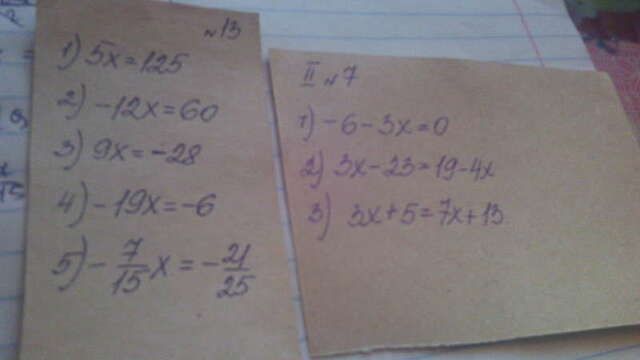 №13
1) 5x=125
2) -12x=60
3) 9x=-28
4) -19x=-6
5) -7/15 x = -21/25
II №7
1) -6-3x=0
2) 3x-23=19-4x
3) 3x+5=7x+13